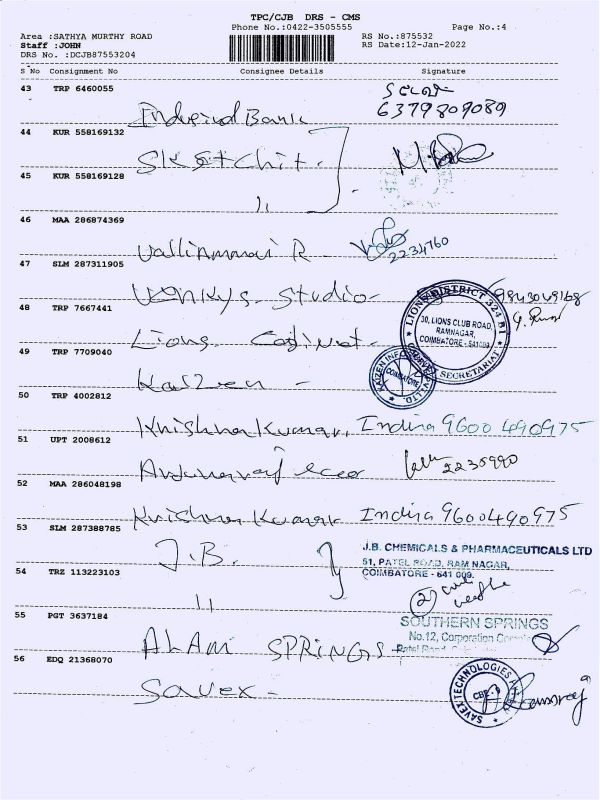 TPC/CJB DRS - CMS
Phone No.:0422-3505555
Page No.:4
Area :SATHYA MURTHY ROAD
Staff :JOHN
DRS No. :DCJB87553204
RS No.:875532
RS Date:12-Jan-2022
S No Consignment No Consignee Details Signature
43 TRP 6460055
6379809089
Indusind Bank
44 KUR 558169132
45 KUR 558169128
46 MAA 286874369
Valliammai R. 2234760
47 SLM 287311905
Venkys Studio - 9843049168
48 TRP 7667441
Lions Cabinet -
LIONS DISTRICT 324 B1
30, LIONS CLUB ROAD,
RAMNAGAR,
COIMBATORE - 641009
SECRETARIAT
49 TRP 7709040
Kaizen -
KAIZEN INFO
COIMBATORE
50 TRP 4002812
Krishna Kumar, Indira 9600490975
51 UPT 2008612
2235990
52 MAA 286048198
Krishna Kumar Indira 9600490975
53 SLM 287388785
J.B.
J.B. CHEMICALS & PHARMACEUTICALS LTD
51, PATEL ROAD, RAM NAGAR,
COIMBATORE - 641 009.
54 TRZ 113223103
11
55 PGT 3637184
ALAM SPRINGS
SOUTHERN SPRINGS
No.12, Corporation
56 EDQ 21368070
Savex -
SAVEX TECHNOLOGIES
CBE